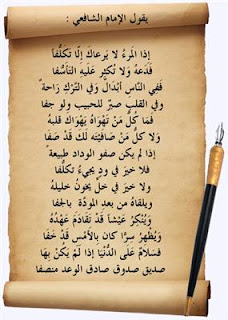 يقول الإمام الشافعي :
إذا المَرءُ لا يَرعاكَ إلّا تكلُّفاً
فَدَعهُ وَلا تُكثِر عَلَيهِ التَأسُّفا
فَفي النّاسِ أبدَالٌ وَفي التَّركِ رَاحةٌ
وفي القلب صبرٌ للحبيب ولو جفا
فمَا كُلُّ مَنْ تَهْوَاهُ يَهْوَاكَ قلبهُ
وَلا كلُّ مَنْ صَافيْتَه لَكَ قَدْ صَفَا
إذا لم يكن صفو الوداد طبيعةً
فلا خيرَ في ودٍ يجيءُ تكلُّفا
ولا خيرَ في خلٍّ يخونُ خليلهُ
ويلقاهُ من بعدِ المودَّةِ بالجفا
وَيُنْكِرُ عَيْشاً قَدْ تَقَادَمَ عَهْدُهُ
وَيُظْهِرُ سِرًّا كان بالأمْسِ قَدْ خَفَا
سَلامٌ عَلَى الدُّنْيَا إذا لمْ يَكُنْ بِهَا
صديق صدوق صادق الوعد منصفا